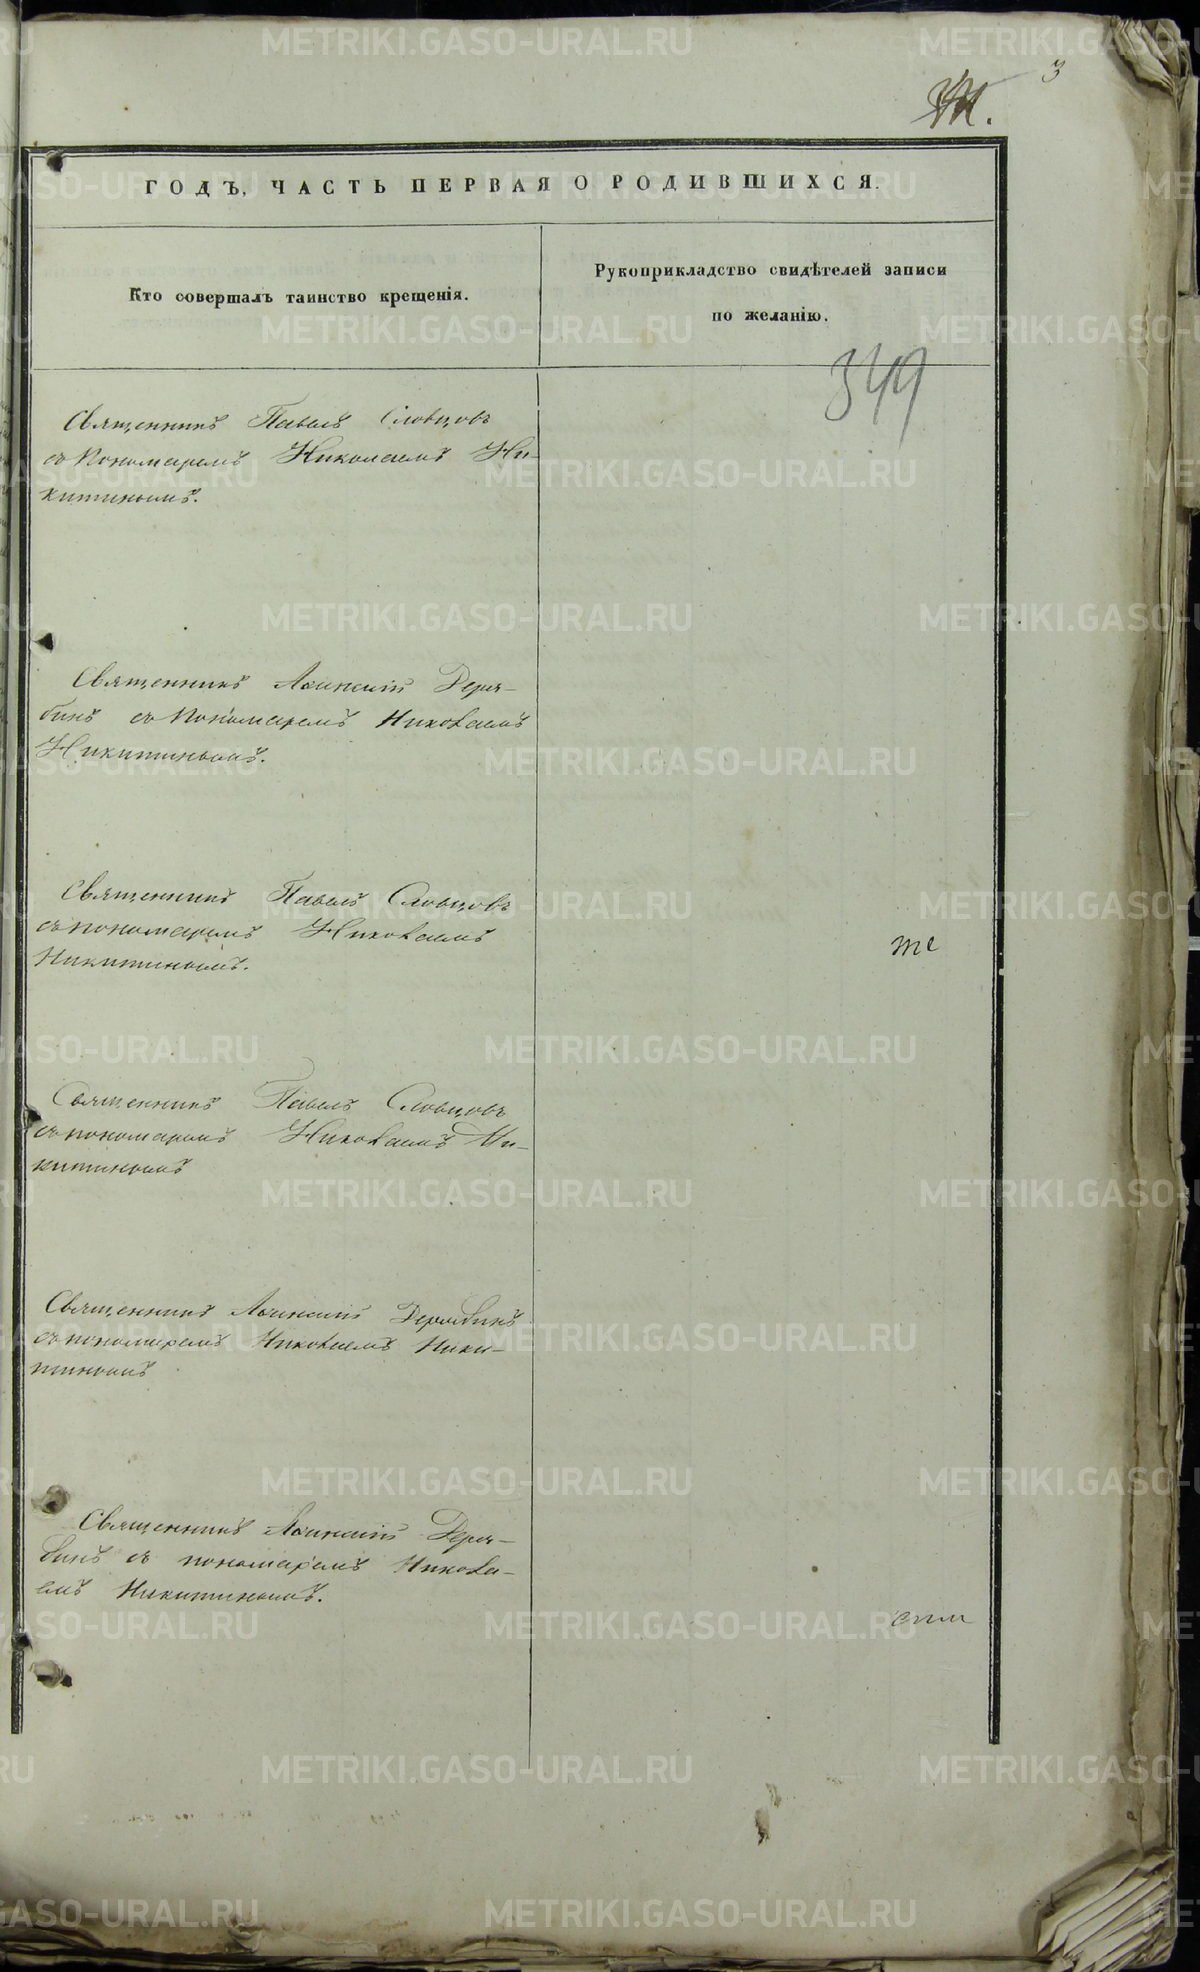 3
ГОДЪ, ЧАСТЬ ПЕРВАЯ О РОДИВШИХСЯ.
Кто совершалъ таинство крещенія.
Рукоприкладство свидѣтелей записи
по желанію.
349
Священникъ Павелъ Словцовъ
съ Пономаремъ Николаемъ Ни-
китинымъ.
Священникъ Афанасій Деря-
бинъ съ Пономаремъ Николаемъ
Никитинымъ.
Священникъ Павелъ Словцовъ
съ пономаремъ Николаемъ
Никитинымъ.
те
Священникъ Павелъ Словцовъ
съ пономаремъ Николаемъ Ни-
китинымъ
Священникъ Афанасій Дерябинъ
съ пономаремъ Николаемъ Ники-
тинымъ
Священникъ Афанасій Деря-
бинъ съ пономаремъ Никола-
емъ Никитинымъ.
METRIKI.GASO-URAL.RU